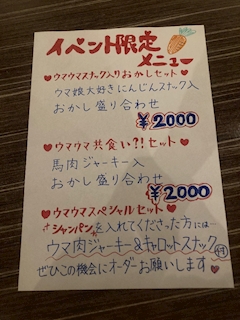 イベント限定
メニュー
♥ウマウマスナック入りおかしセット♥
ウマ娘大好きにんじんスナック入
おかし盛り合わせ
¥2000
♥ウマウマ共食い?!セット♥
馬肉ジャーキー入
おかし盛り合わせ
¥2000
♥ウマウマスペシャルセット♥
シャンパンを入れてくださった方には…
ウマ肉ジャーキー&キャロットスナック付き
ぜひこの機会にオーダーお願いします♥